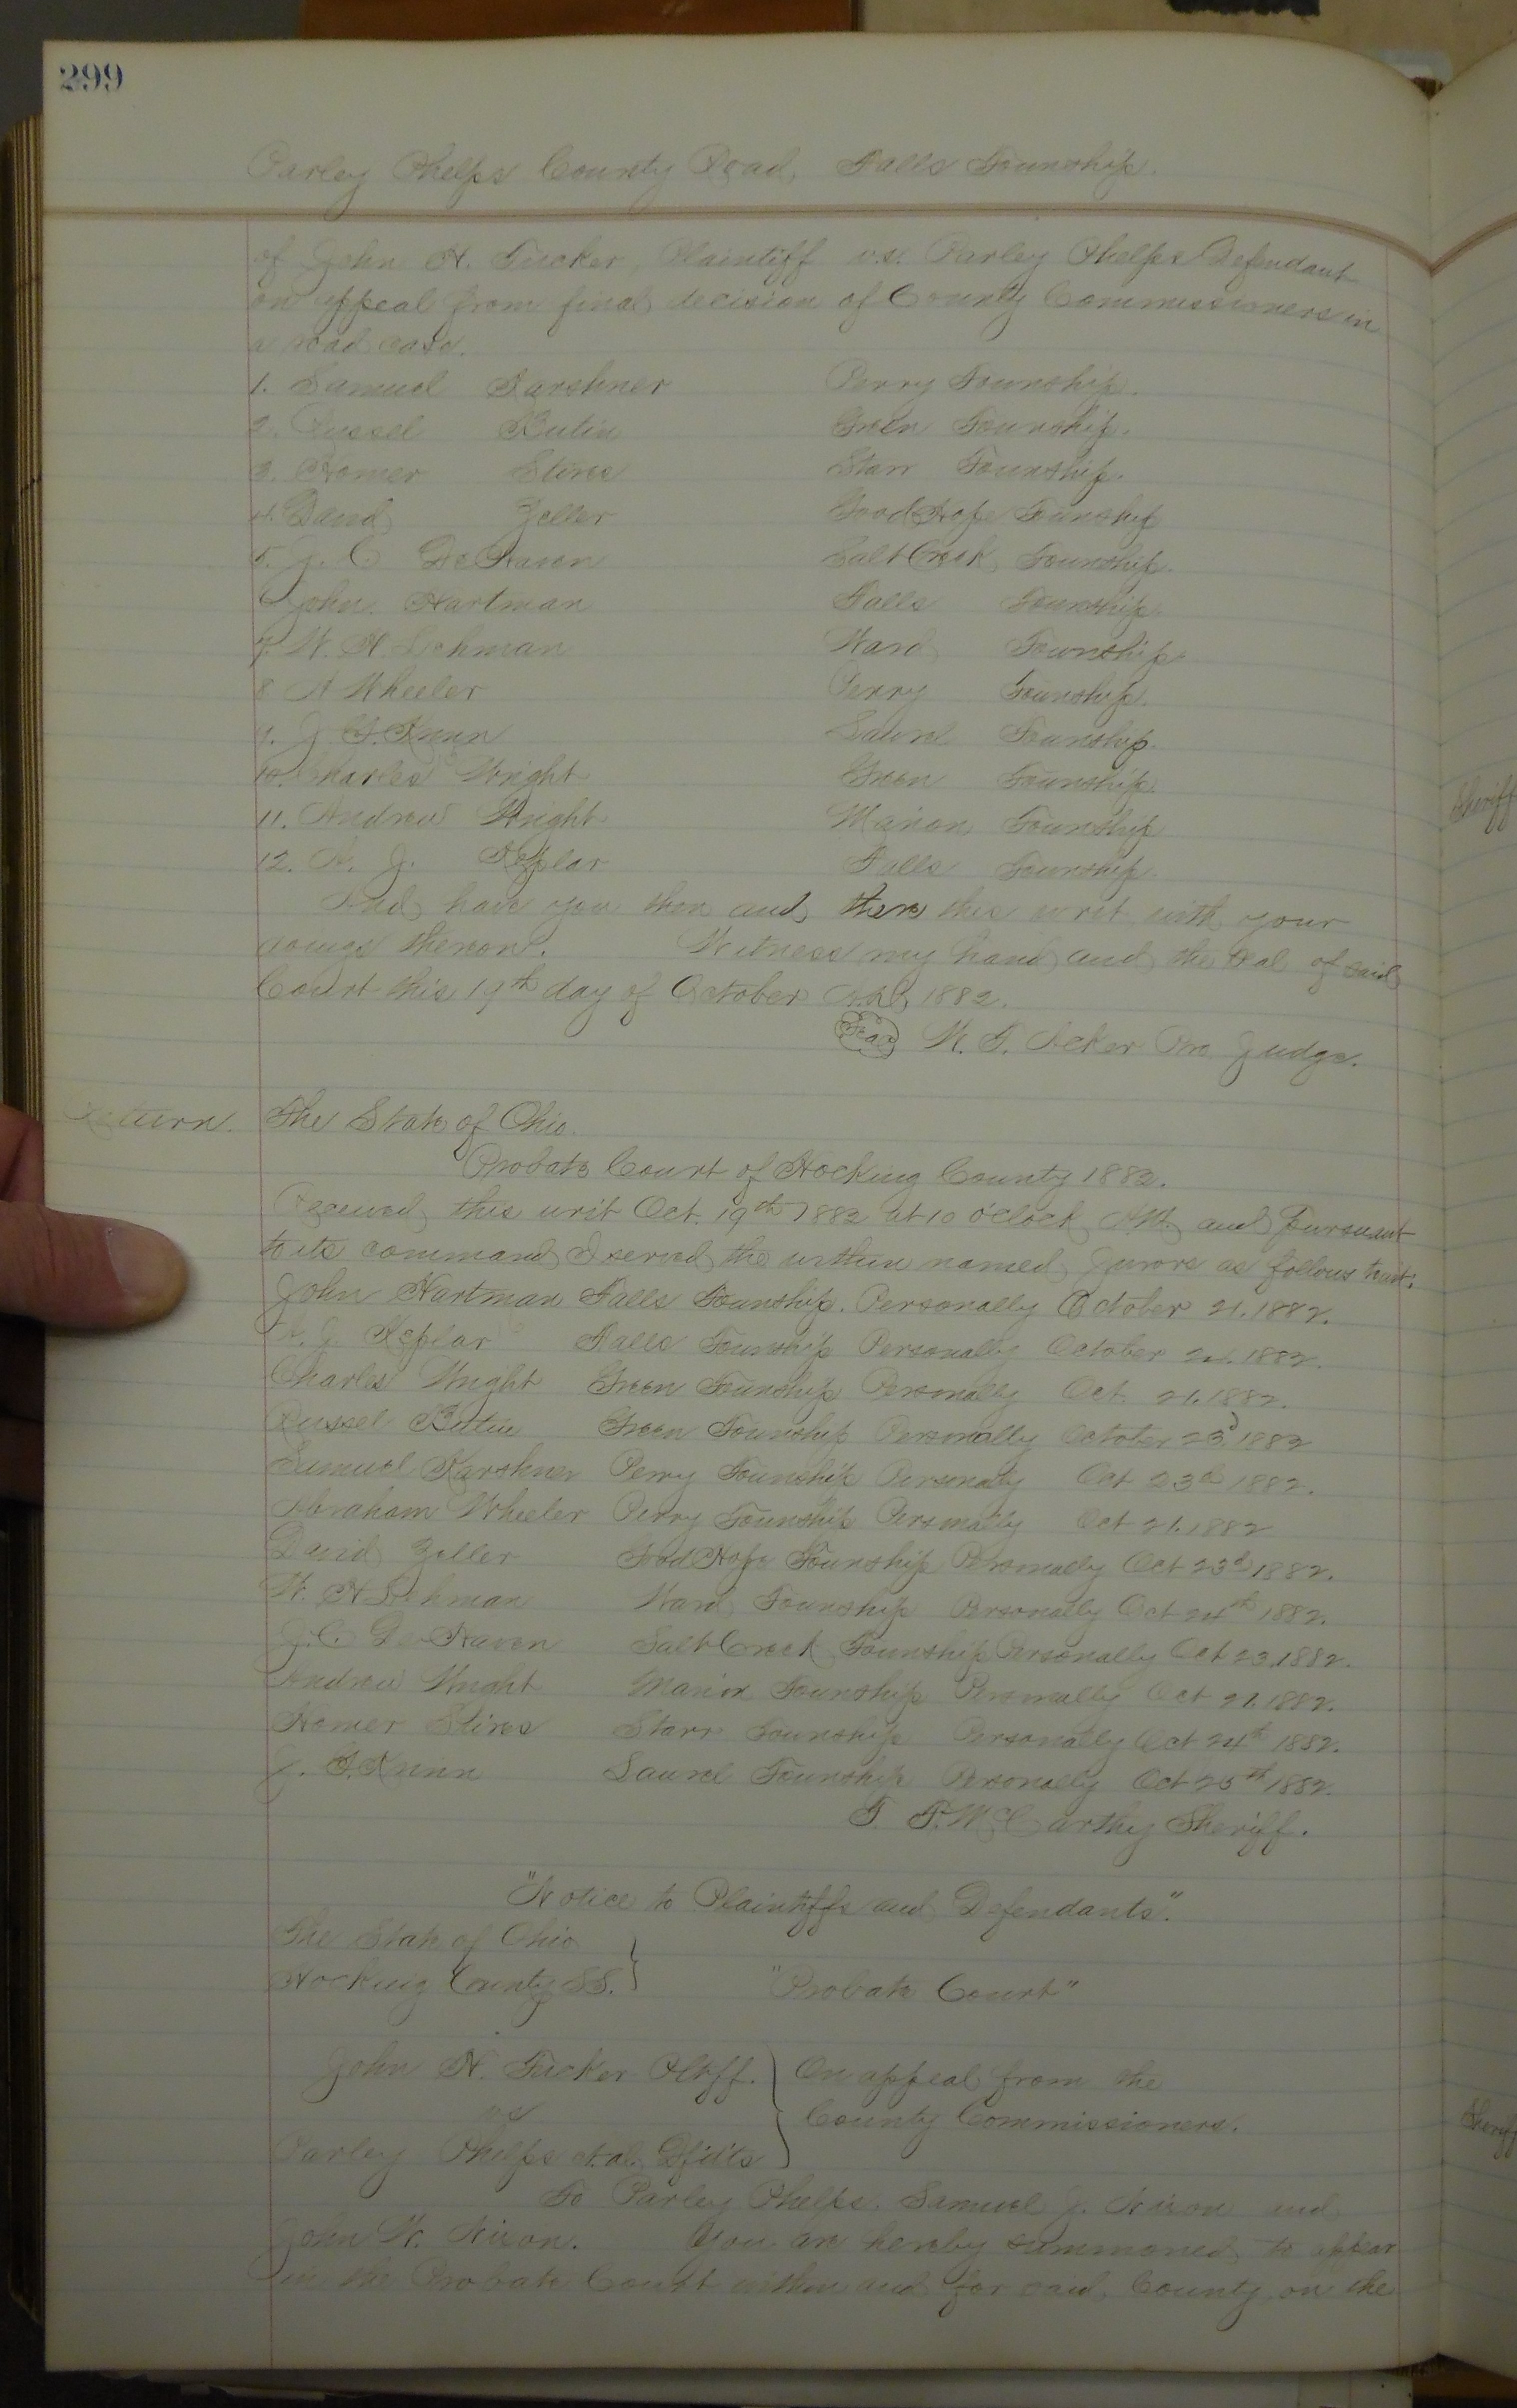 299
Parley Phelps County Road, Falls Township.
of John H. Tucker, Plaintiff v.s. Parley Phelps Defendant
on appeal from final decision of County Commissioners in
a road case.
1. Samuel Karshner Perry Township.
2. Russel Green Township.
3. Homer Stires Starr Township.
4. David Zeller Good Hope Township
5. J. C. DeHaven Salt Creek Township.
6 John Hartman Falls Township.
7. W. H. Lehman Ward Township.
8 A Wheeler Perry Township.
9. J Laurel Township.
10. Charles Wright Green Township.
11. Andrew Wright Marion Township
12. A. J. Keplar Falls Township.
And have you then and there this writ with your
doings thereon. Witness my hand and the seal of said
Court this 19th day of October A.D. 1882.
Seal W. T. Acker Pro Judge.
Return. The State of Ohio.
Probate Court of Hocking County 1882.
Received this writ Oct. 19th 1882 at 10 o'clock A.M. and Pursuant
to its command I served the within named Jurors as follows
John Hartman Falls Township. Personally October 21. 1882.
A. J. Keplar Falls Township Personally October 1882.
Charles Wright Green Township Personally Oct. 21. 1882.
Russel Green Township Personally October 23d 1882
Samuel Karshner Perry Township Personally Oct 23d 1882.
Abraham Wheeler Perry Township Personally Oct 21. 1882
David Zeller Good Hope Township Personally Oct 23d 1882.
W. H Lehman Ward Township Personally Oct 24th 1882.
J. C. DeHaven Salt Creek Township Personally Oct 23. 1882.
Andrew Wright Marion Township Personally Oct 21. 1882.
Homer Stires Starr Township Personally Oct 24th 1882.
J. Laurel Township Personally Oct 25th 1882.
T. F. McCarthy Sheriff.
"Notice to Plaintiffs and Defendants".
The State of Ohio
Hocking County SS. } "Probate Court"
John H. Tucker Pltff. } On appeal from the
vs County Commissioners.
Parley Phelps et al. Dfdts
To Parley Phelps, Samuel J. Nixon and
John W. Nixon. You are hereby summoned to appear
in the Probate Court within and for said County on the
Sheriff